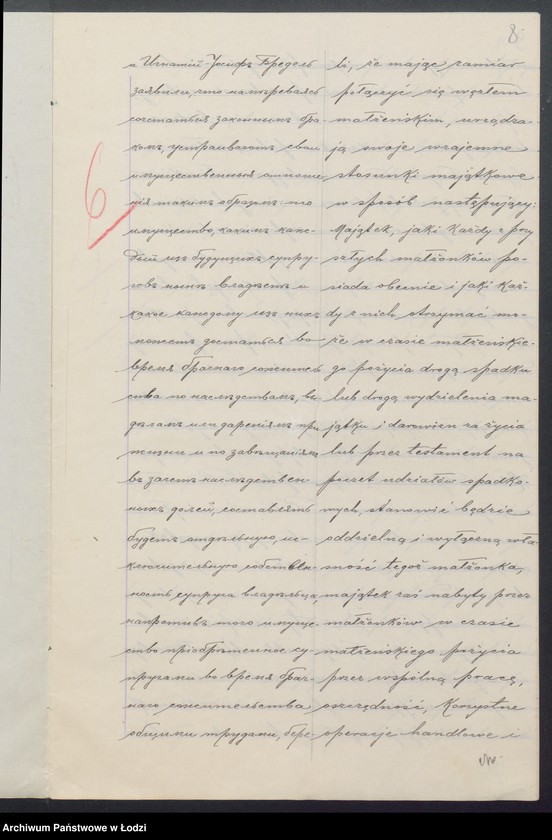 8
и Игнатій-Іосифъ Бредель
заявили, что намѣреваясь
сочетаться законнымъ бра-
комъ, устраиваютъ свои
имущественныя отноше-
нія такимъ образомъ: то
имущество, какимъ каж-
дый изъ будущихъ супру-
говъ нынѣ владѣетъ и
какое каждому изъ нихъ
можетъ достаться во
время брачнаго сожитель
ства по наслѣдствамъ, вы
дѣламъ или дареніямъ при
жизни и по завѣщаніямъ
въ зачетъ наслѣдствен
ныхъ долей, составлять
будетъ отдѣльную, ис-
ключительную собствен
ность супруга владѣльца,
напротивъ того имуще-
ство пріобрѣтенное су-
пругами во время брач-
наго сожительства
общими трудами, бере-
li, że mając zamiar
połączyć się węzłem
małżeńskim, urządza-
ją swoje wzajemne
stosunki majątkowe
w sposób następujący:
Majątek, jaki każdy z przy
szłych małżonków po-
siada obecnie i jaki każ-
dy z nich otrzymać mo-
że w czasie małżeńskie-
go pożycia drogą spadku
lub drogą wydzielenia ma-
jątku i darowizn za życia
lub przez testament na
poczet udziałów spadko-
wych, stanowić będzie
oddzielną i wyłączną wła-
sność tegoż małżonka,
majątek zaś nabyty przez
małżonków w czasie
małżeńskiego pożycia
przez wspólną pracę,
oszczędność, korzystne
operacje handlowe i
6
Archiwum Państwowe w Łodzi